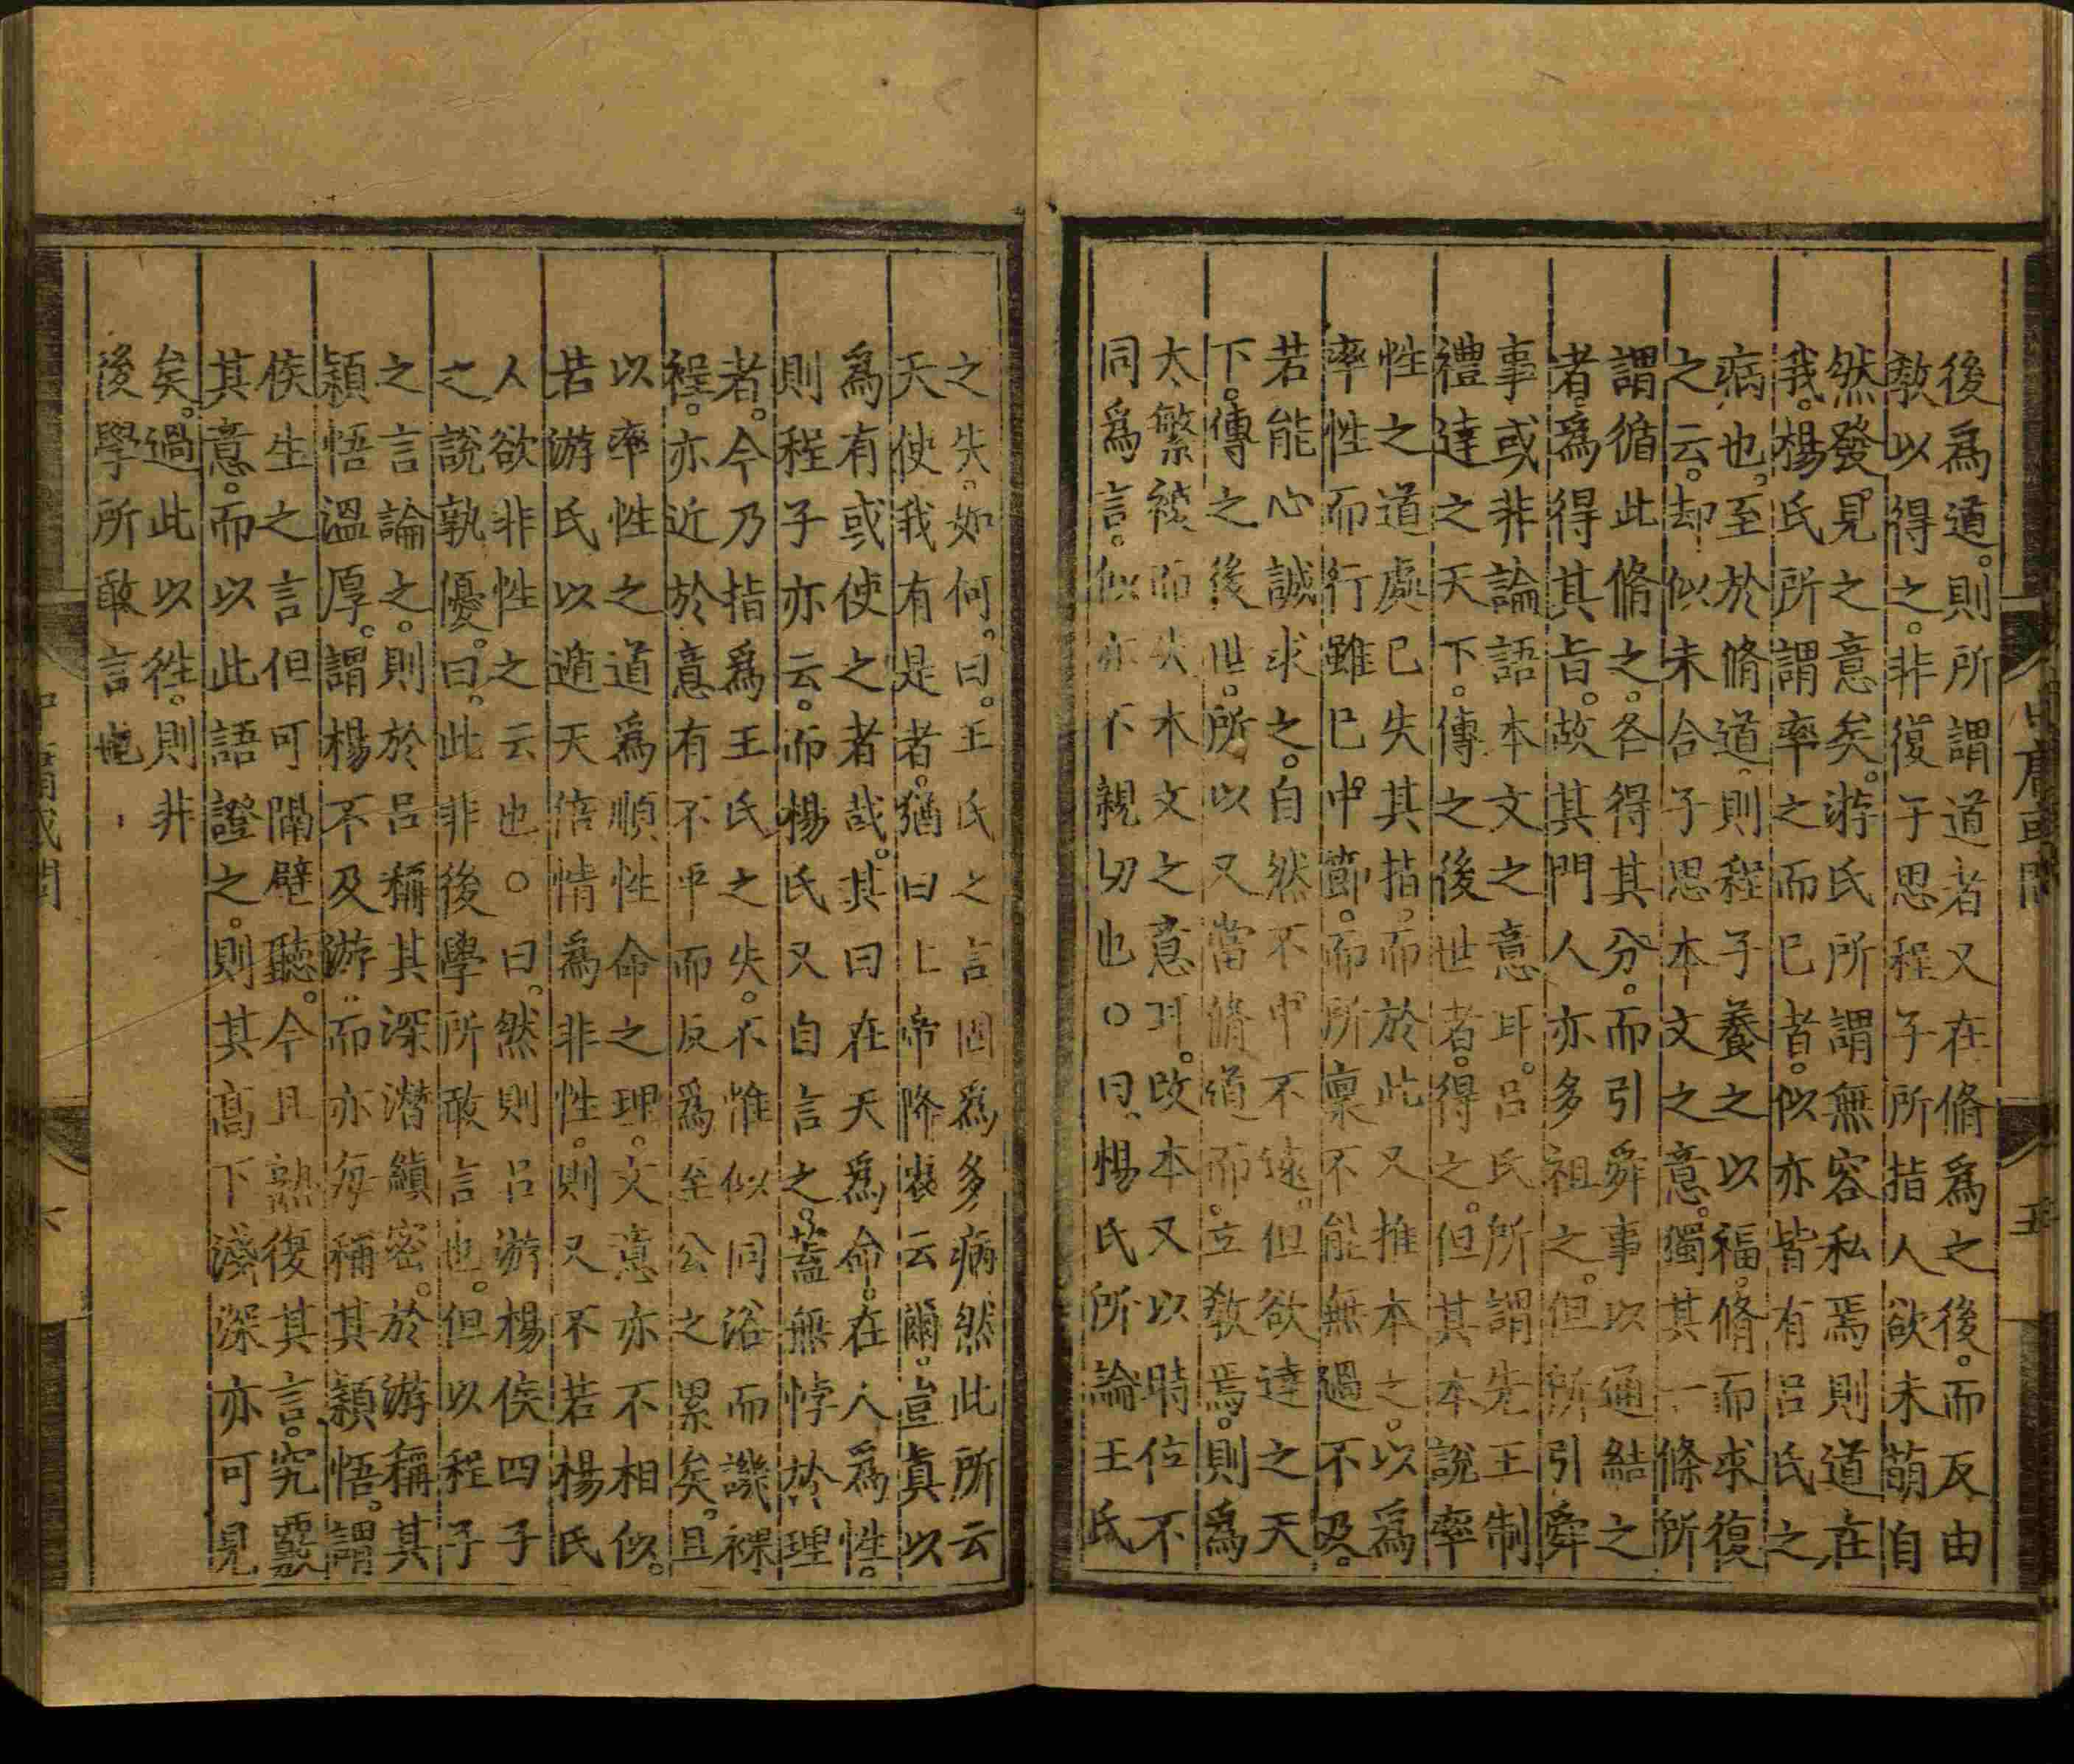 後爲道。則所謂道者又在脩爲之後。而反由
教以得之。非復子思程子所指人欲未萌自
然發見之意矣。游氏所謂無容私焉則道在
我。楊氏所謂率之而已者。似亦皆有呂氏之
病也。至於脩道。則程子養之以福。脩而求復
之云。却似未合子思本文之意。獨其一條所
謂循此脩之。各得其分。而引舜事以通結之
者。爲得其旨。故其門人亦多祖之。但所引舜
事或非論語本文之意耳。呂氏所謂先王制
禮達之天下。傳之後世者。得之。但其本說率
性之道處已失其指。而於此又推本之。以爲
率性而行雖已中節。而所禀不能無過不及。
若能心誠求之。自然不中不遠。但欲達之天
下。傳之後世。所以又當脩道而。立教焉。則爲
太繁複而失本文之意耳。改本又以時位不
同爲言。似亦不親切也。○曰。楊氏所論王氏
之失。如何。曰。王氏之言固爲多病然此所云
天使我有是者。猶曰上帝降衷云爾。豈真以
爲有或使之者哉。其曰在天爲命。在人爲性。
則程子亦云。而楊氏又自言之。蓋無悖於理
者。今乃指爲王氏之失。不惟似同浴而譏裸
裎。亦近於意有不平而反爲至公之累矣。且
以率性之道爲順性命之理。文意亦不相似。
若游氏以遁天倍情爲非性。則又不若楊氏
人欲非性之云也。○曰。然則呂游楊侯四子
之說孰優。曰。此非後學所敢言也。但以程子
之言論之。則於呂稱其深潛縝密。於游稱其
穎悟溫厚。謂楊不及游。而亦每稱其穎悟。謂
侯生之言但可隔壁聽。今且熟復其言。究覈
其意。而以此語證之。則其高下淺深亦可見
矣。過此以徃。則非
後學所敢言也
中庸或問
五
中庸或問
六